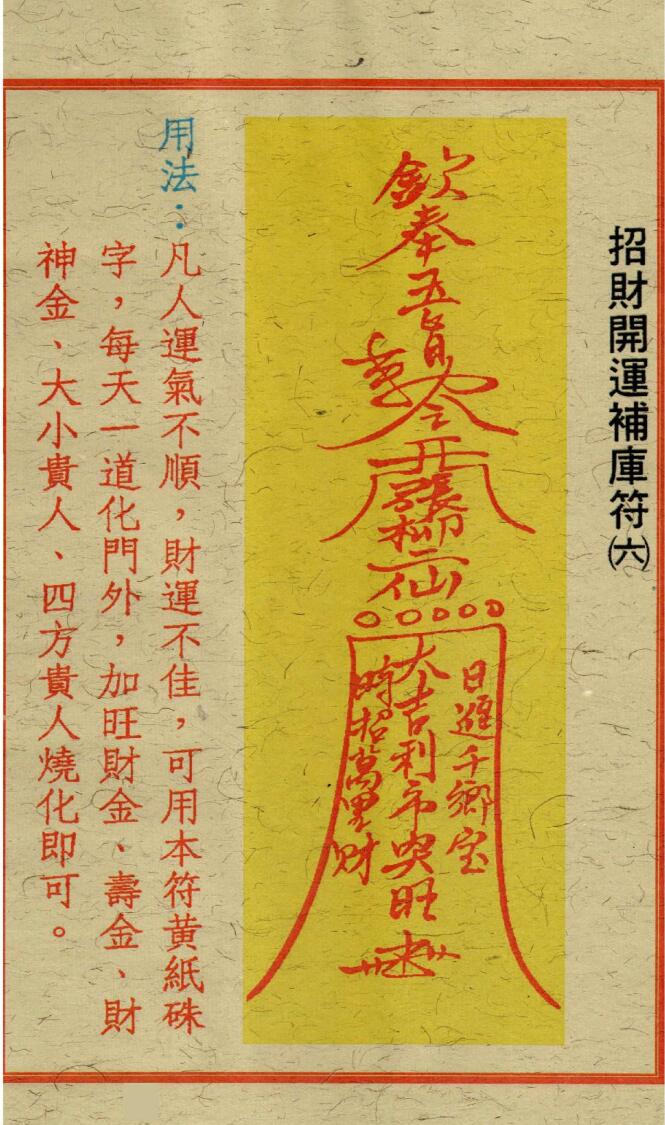 招財開運補庫符㈥
欽奉五
令
張柳二仙
日進千鄉宝
大吉利市興旺
時招萬里財
用法：
凡人運氣不順，財運不佳，可用本符黃紙硃
字，每天一道化門外，加旺財金、壽金、財
神金、大小貴人、四方貴人燒化即可。